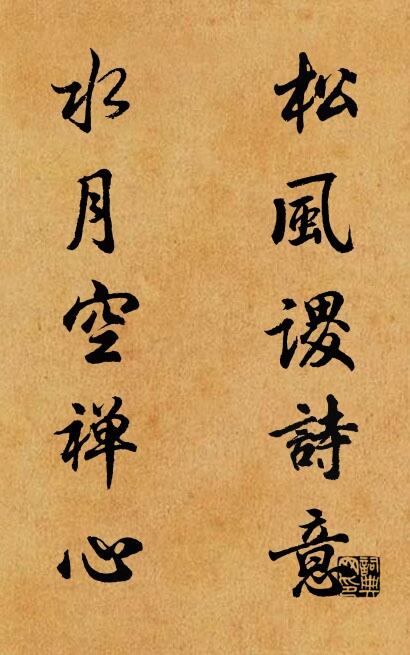 松風謖詩意
水月空禅心
詞典網印